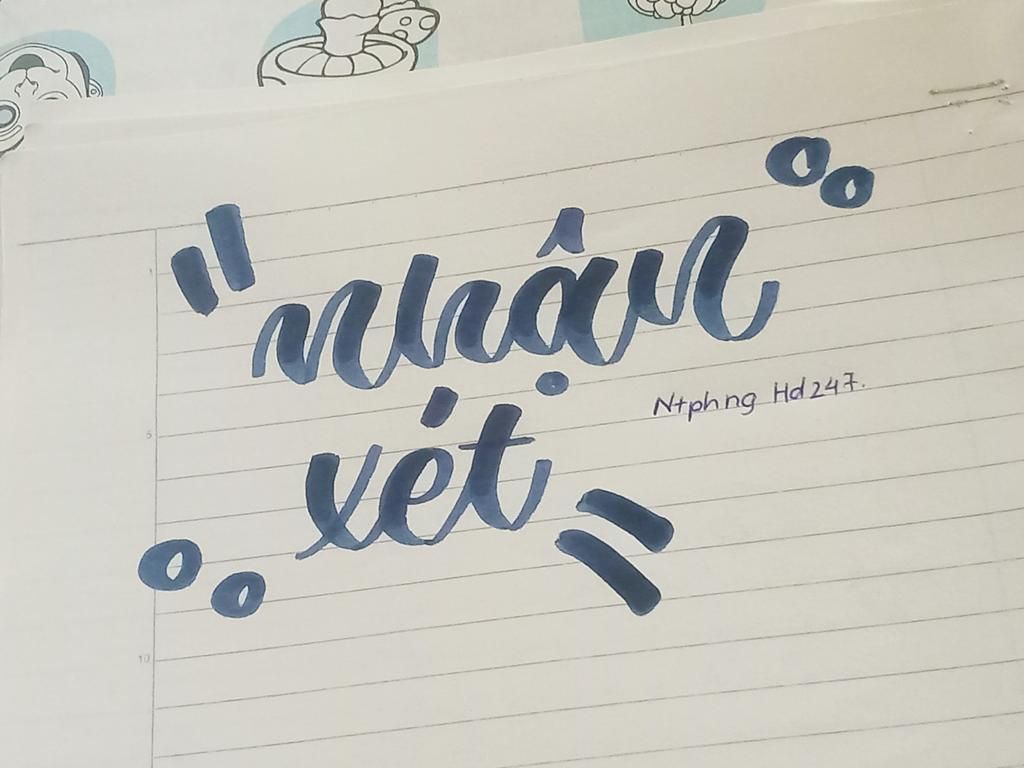 nhận
xét
Ntphng Hd247.
1
5
10